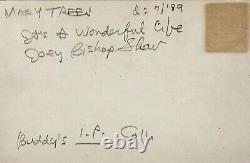 MARY TREEN S: 7/'89
It's A Wonderful Life
Joey Bishop Show
Buddy's I.P. Coll.
worthpoint